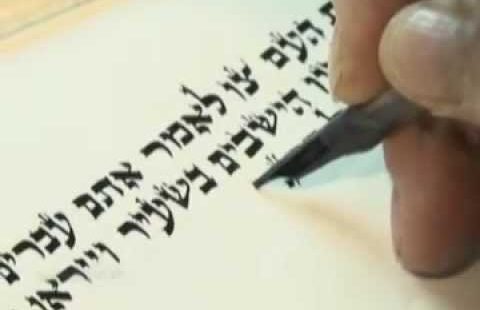 העם צו לאמר אתם עברים
הישבים בשעיר